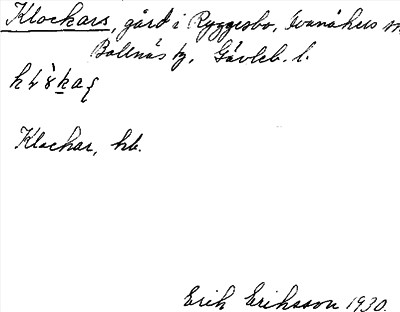 Klockars, gård i Ryggesbo, Svanåkers
Bollnäs tg, Gävleb. l.
Klockar, hb.
Erik Eriksson 1930.